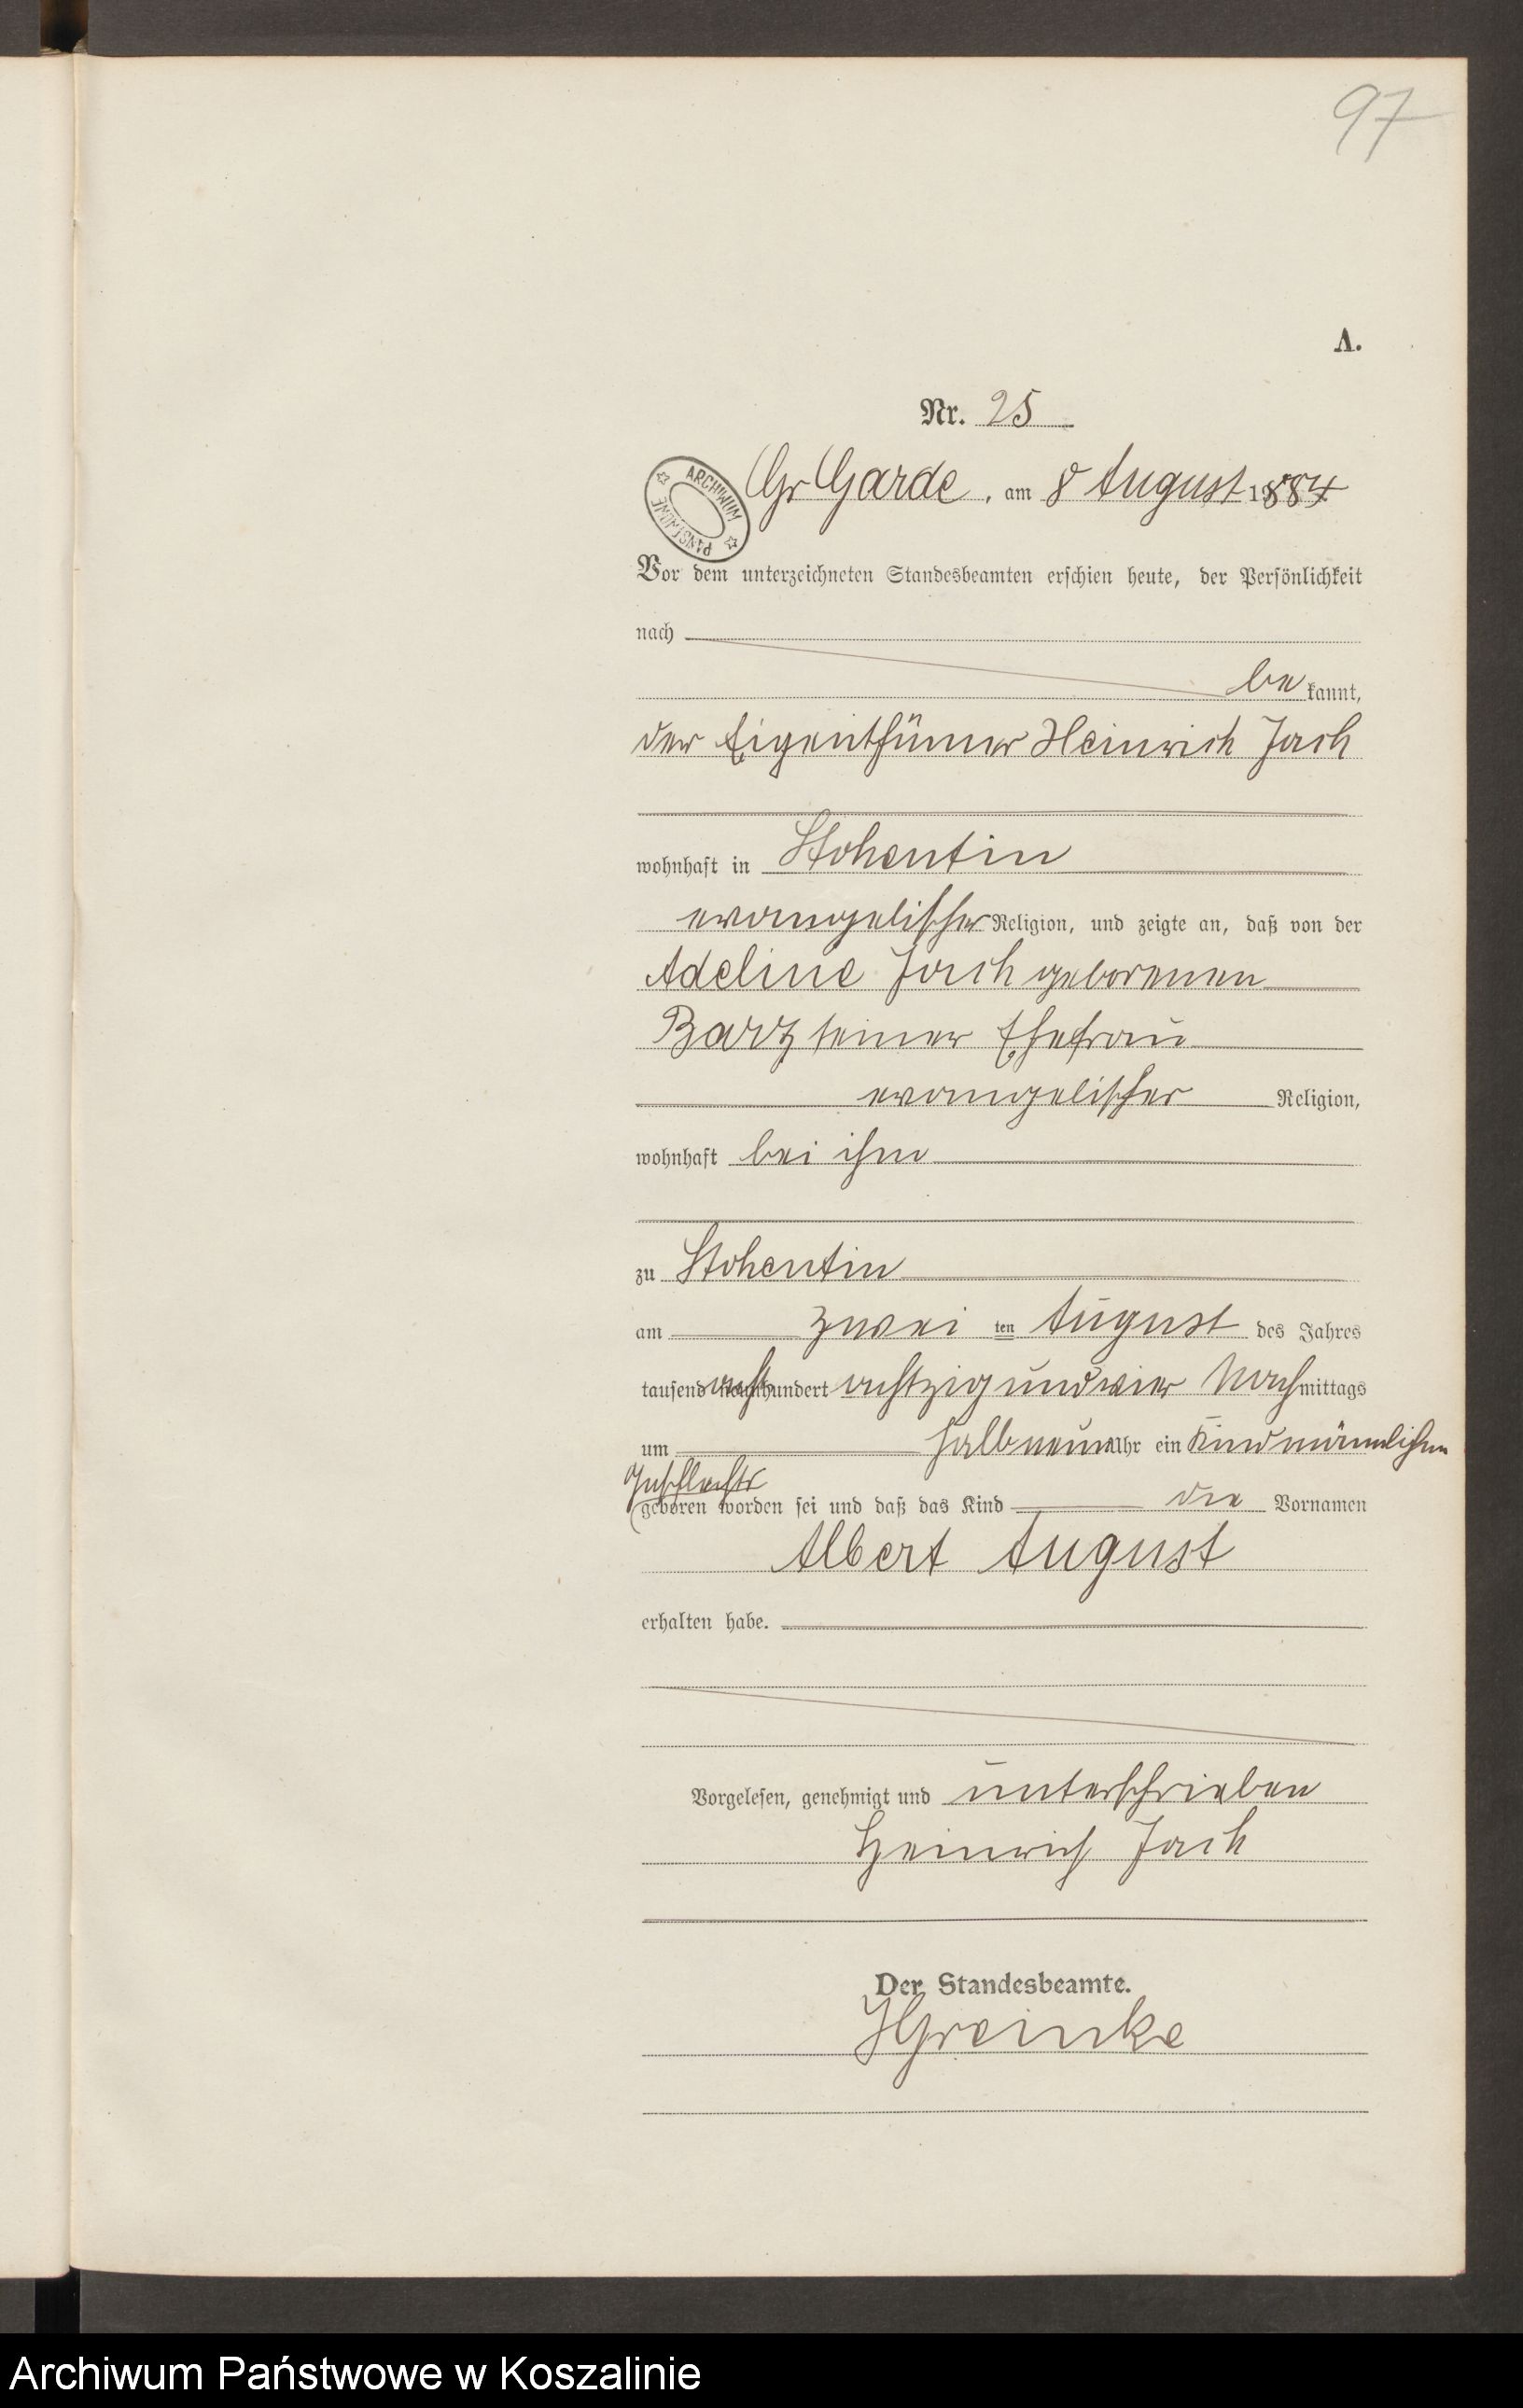 97
A.
Nr. 25
ARCHIWUM PAŃSTWOWE
Gr Garde, am 8 August 1884
Vor dem unterzeichneten Standesbeamten erschien heute, der Persönlichkeit
nach
be kannt,
der Eigenthümer Heinrich Jach
wohnhaft in Stohentin
evangelischer Religion, und zeigte an, daß von der
Adeline Jach geborenen
Barz seiner Ehefrau
evangelischer Religion,
wohnhaft bei ihm
zu Stohentin
am zwei ten August des Jahres
tausend acht hundert achtzig und vier Nach mittags
um halb neun Uhr ein Kind männlichen
Geschlechts
geboren worden sei und daß das Kind die Vornamen
Albert August
erhalten habe.
Vorgelesen, genehmigt und unterschrieben
Heinrich Jach
Der Standesbeamte.
HGreinke
Archiwum Państwowe w Koszalinie